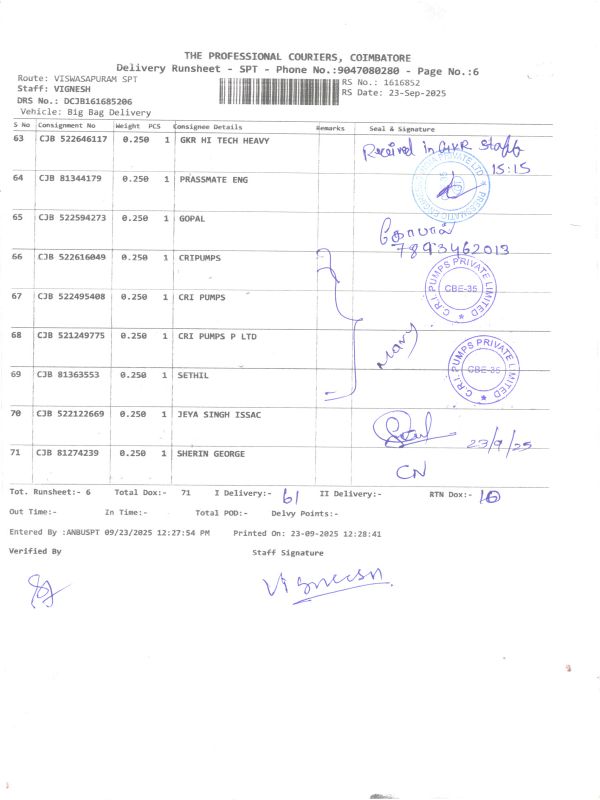 THE PROFESSIONAL COURIERS, COIMBATORE
Delivery Runsheet - SPT - Phone No.:9047080280 - Page No.:6
Route: VISWASAPURAM SPT
RS No.: 1616852
Staff: VIGNESH
RS Date: 23-Sep-2025
DRS No.: DCJB161685206
Vehicle: Big Bag Delivery
S No Consignment No Weight PCS Consignee Details Remarks Seal & Signature
63 CJB 522646117 0.250 1 GKR HI TECH HEAVY Received in GKR Staff
15:15
64 CJB 81344179 0.250 1 PRASSMATE ENG
65 CJB 522594273 0.250 1 GOPAL கோபால்
7893462013
66 CJB 522616049 0.250 1 CRIPUMPS
C.R.I. PUMPS PRIVATE LIMITED
CBE-35
67 CJB 522495408 0.250 1 CRI PUMPS
68 CJB 521249775 0.250 1 CRI PUMPS P LTD Mary
C.R.I. PUMPS PRIVATE LIMITED
CBE-35
69 CJB 81363553 0.250 1 SETHIL
70 CJB 522122669 0.250 1 JEYA SINGH ISSAC 23/9/25
71 CJB 81274239 0.250 1 SHERIN GEORGE CN
Tot. Runsheet:- 6 Total Dox:- 71 I Delivery:- 61 II Delivery:- RTN Dox:- 10
Out Time:- In Time:- Total POD:- Delvy Points:-
Entered By :ANBUSPT 09/23/2025 12:27:54 PM Printed On: 23-09-2025 12:28:41
Verified By Staff Signature
Vignesh